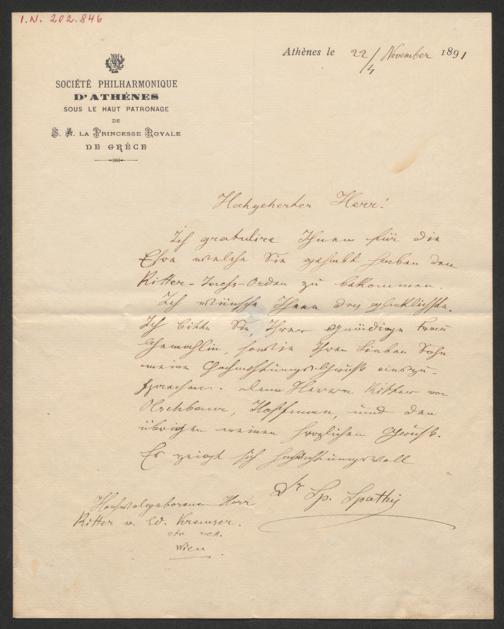 I.N. 202.846
Athènes le 22/4 November 1891
SOCIÉTÉ PHILHARMONIQUE
D'ATHÈNES
SOUS LE HAUT PATRONAGE
DE
S. A. LA PRINCESSE ROYALE
DE GRÈCE
Hochgeehrter Herr!
Ich gratulire Ihnen für die
Ehre welche Sie gehabt haben den
Ritter-Orden zu bekommen.
Ich wünsche Ihnen das glücklichste.
Ich bitte Sie Ihrer gnädige Frau
Gemahlin, sowie Ihren lieben Sohn
meine Hochachtungs
sprechen. Dem Herrn Ritter von
Olschbaur, Hoffmann, und den
übrigen meinen herzlichen Gruss.
Es zeigt sich hochachtungsvoll
Dr Sp. Spathis
Hochwolgeborenen Herr
Ritter v. Ed. Kremser.
etc.
Wien